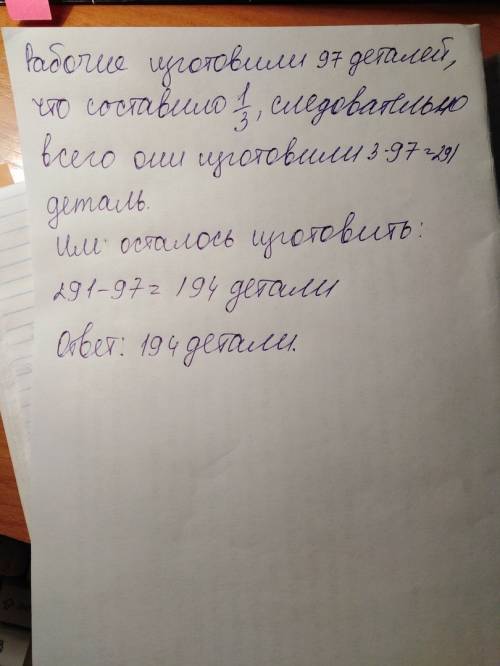 Рабочие изготовили 97 деталей,
что составило 1/3, следовательно
всего они изготовили 3·97=291
деталь.
Им осталось изготовить:
291-97= 194 детали
Ответ: 194 детали.